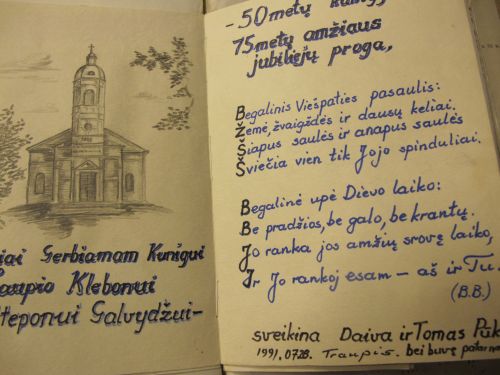 ...iai Gerbiamam Kunigui
...aupio Klebonui
...teponui Galvydžui-
- 50 metų
75 metų amžiaus
jubiliejų proga,
Begalinis Viešpaties pasaulis:
Žemė, žvaigždės ir dausų keliai.
Šiapus saulės ir anapus saulės
Šviečia vien tik Jojo spinduliai.
Begalinė upė Dievo laiko:
Be pradžios, be galo, be krantų.
Jo ranka jos amžių srovę laiko,
Ir Jo rankoj esam – aš ir Tu
(B.B.)
sveikina Daiva ir Tomas
1991.07.28. Traupis. bei buvę